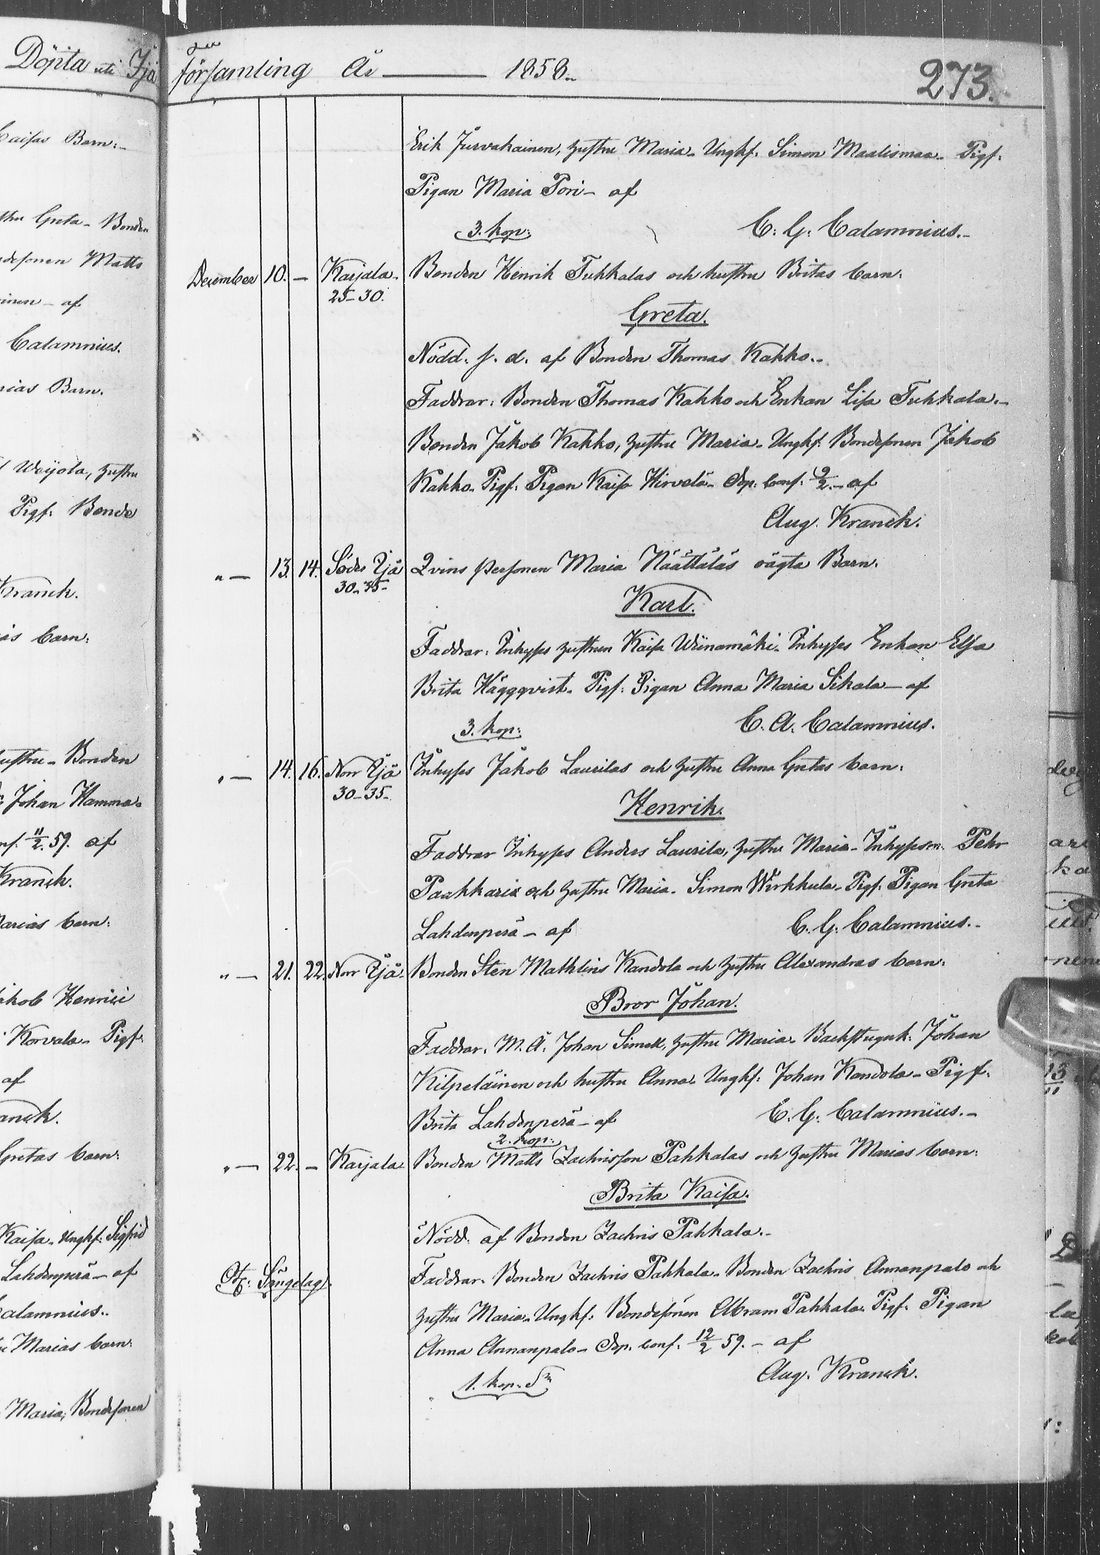 Döpta uti Ijä
församling År 1858.
273.
Caisas Barn:
Greta Bonden
Matts
af
Calamnius.
Barn.
Weijola, hustru
Pigf: Bonde
Kranck.
barn:
hustru Bonden
Johan Hamma
11/2. 59. af
Kranck.
Marias barn:
Jakob Henrici
Korvala Pigf.
af
Gretas barn:
Kaisa, Ungkf: Sigfrid
Lahdenperä af
Calamnius.
Marias barn:
Maria, Bondesonen
Erik Jurvakainen, hustru Maria. Ungkf. Simon Maalismaa Pigf:
Pigan Maria Pori af
3. kop: C. G. Calamnius.
December 10. Karjala. 25-30. Bonden Henrik Tukkalas och hustru Britas barn:
Greta.
Nödd. s. d. af Bonden Thomas Kakko.
Faddrar: Bonden Thomas Kakko och Enkan Lisa Tukkala.
Bonden Jakob Kakko, hustru Maria. Ungkf. Bondesonen Jakob
Kakko. Pigf: Pigan Kaisa Hirvelä. Dop. conf. 9/2. af
Aug. Kranck.
" 13. 14. Söder Ijå 30-35. Qvins personen Maria Näättäläs oägta Barn.
Karl.
Faddrar: Inhyses hustrun Kaisa Wiinamäki. Inhyses Enkan Elsa
Brita Häggqvist. Pigf: Pigan Anna Maria Sikala af
3. kop: C. A. Calamnius.
" 14. 16. Norr Ijå 30-35. Inhyses Jakob Laurilas och hustru Anna Gretas barn:
Henrik.
Faddrar Inhyses Anders Laurila, hustru Maria. Inhyses m. Pehr
Paakkari och hustru Maria. Simon Wirkkula. Pigf. Pigan Greta
Lahdenperä af C. G. Calamnius.
" 21. 22. Norr Ijå. Bonden Sten Mathlins Kandola och hustru Alexandras barn:
Bror Johan.
Faddrar. M. A. Johan Simek, hustru Maria. Backstuguk: Johan
Kilpeläinen och hustru Anna. Ungkf. Johan Kandola. Pigf.
Brita Lahdenperä af C. G. Calamnius.
2. kop:
" 22. Karjala Bonden Matts Zachrisson Pahkalas och hustru Marias barn:
Brita Kaisa.
Nödd. af Bonden Zachris Pahkala.
Faddrar. Bonden Zachris Pahkala. Bonden Zachris Annanpalo och
hustru Maria. Ungkf. Bondesonen Abram Pahkala. Pigf. Pigan
Anna Annanpalo. Dop. conf. 12/2 59. af
1. kop. Aug. Kranck.